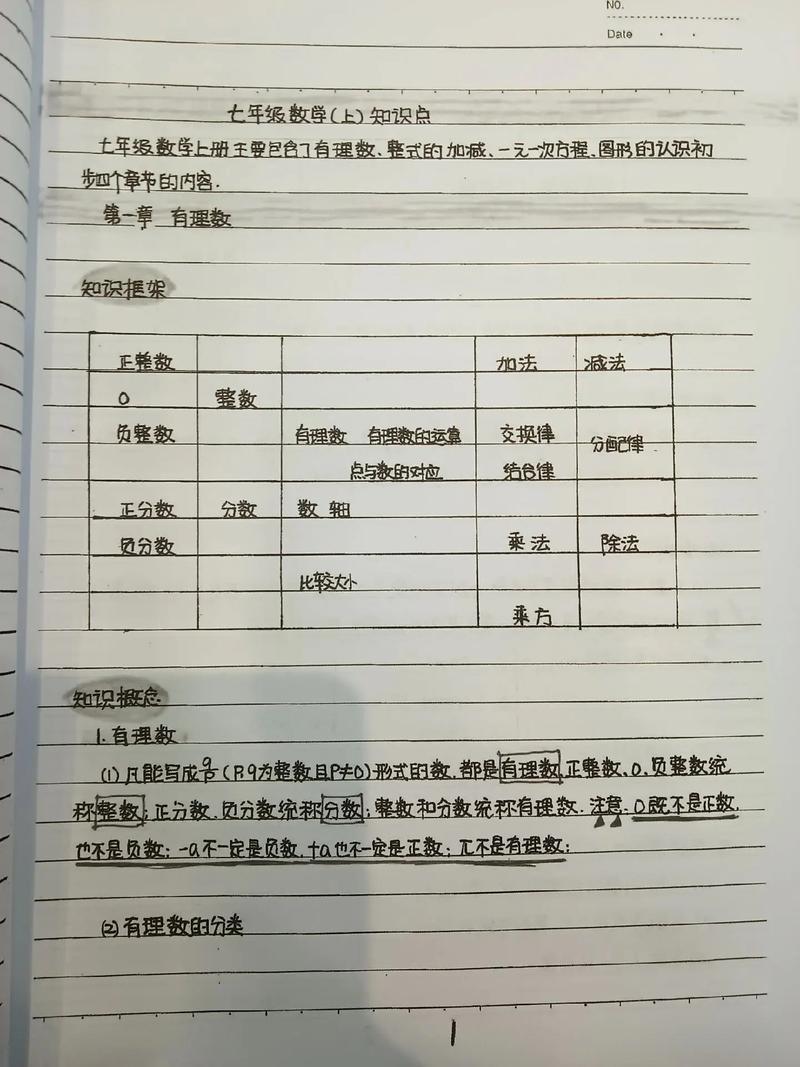 No.
Date
七年级数学(上)知识点
七年级数学上册主要包含了有理数、整式的加减、一元一次方程、图形的认识初
步四个章节的内容.
第一章 有理数
知识框架
正整数 加法 减法
0 整数
负整数 有理数 有理数的运算 交换律 分配律
点与数的对应 结合律
正分数 分数 数轴
负分数 乘法 除法
比较大小
乘方
知识概念
1.有理数
(1)凡能写成q/p(P,q为整数且P≠0)形式的数,都是有理数,正整数、0、负整数统
称整数;正分数、负分数统称分数;整数和分数统称有理数.注意:0既不是正数,
也不是负数;-a不一定是负数,+a也不一定是正数;π不是有理数;
(2)有理数的分类
1